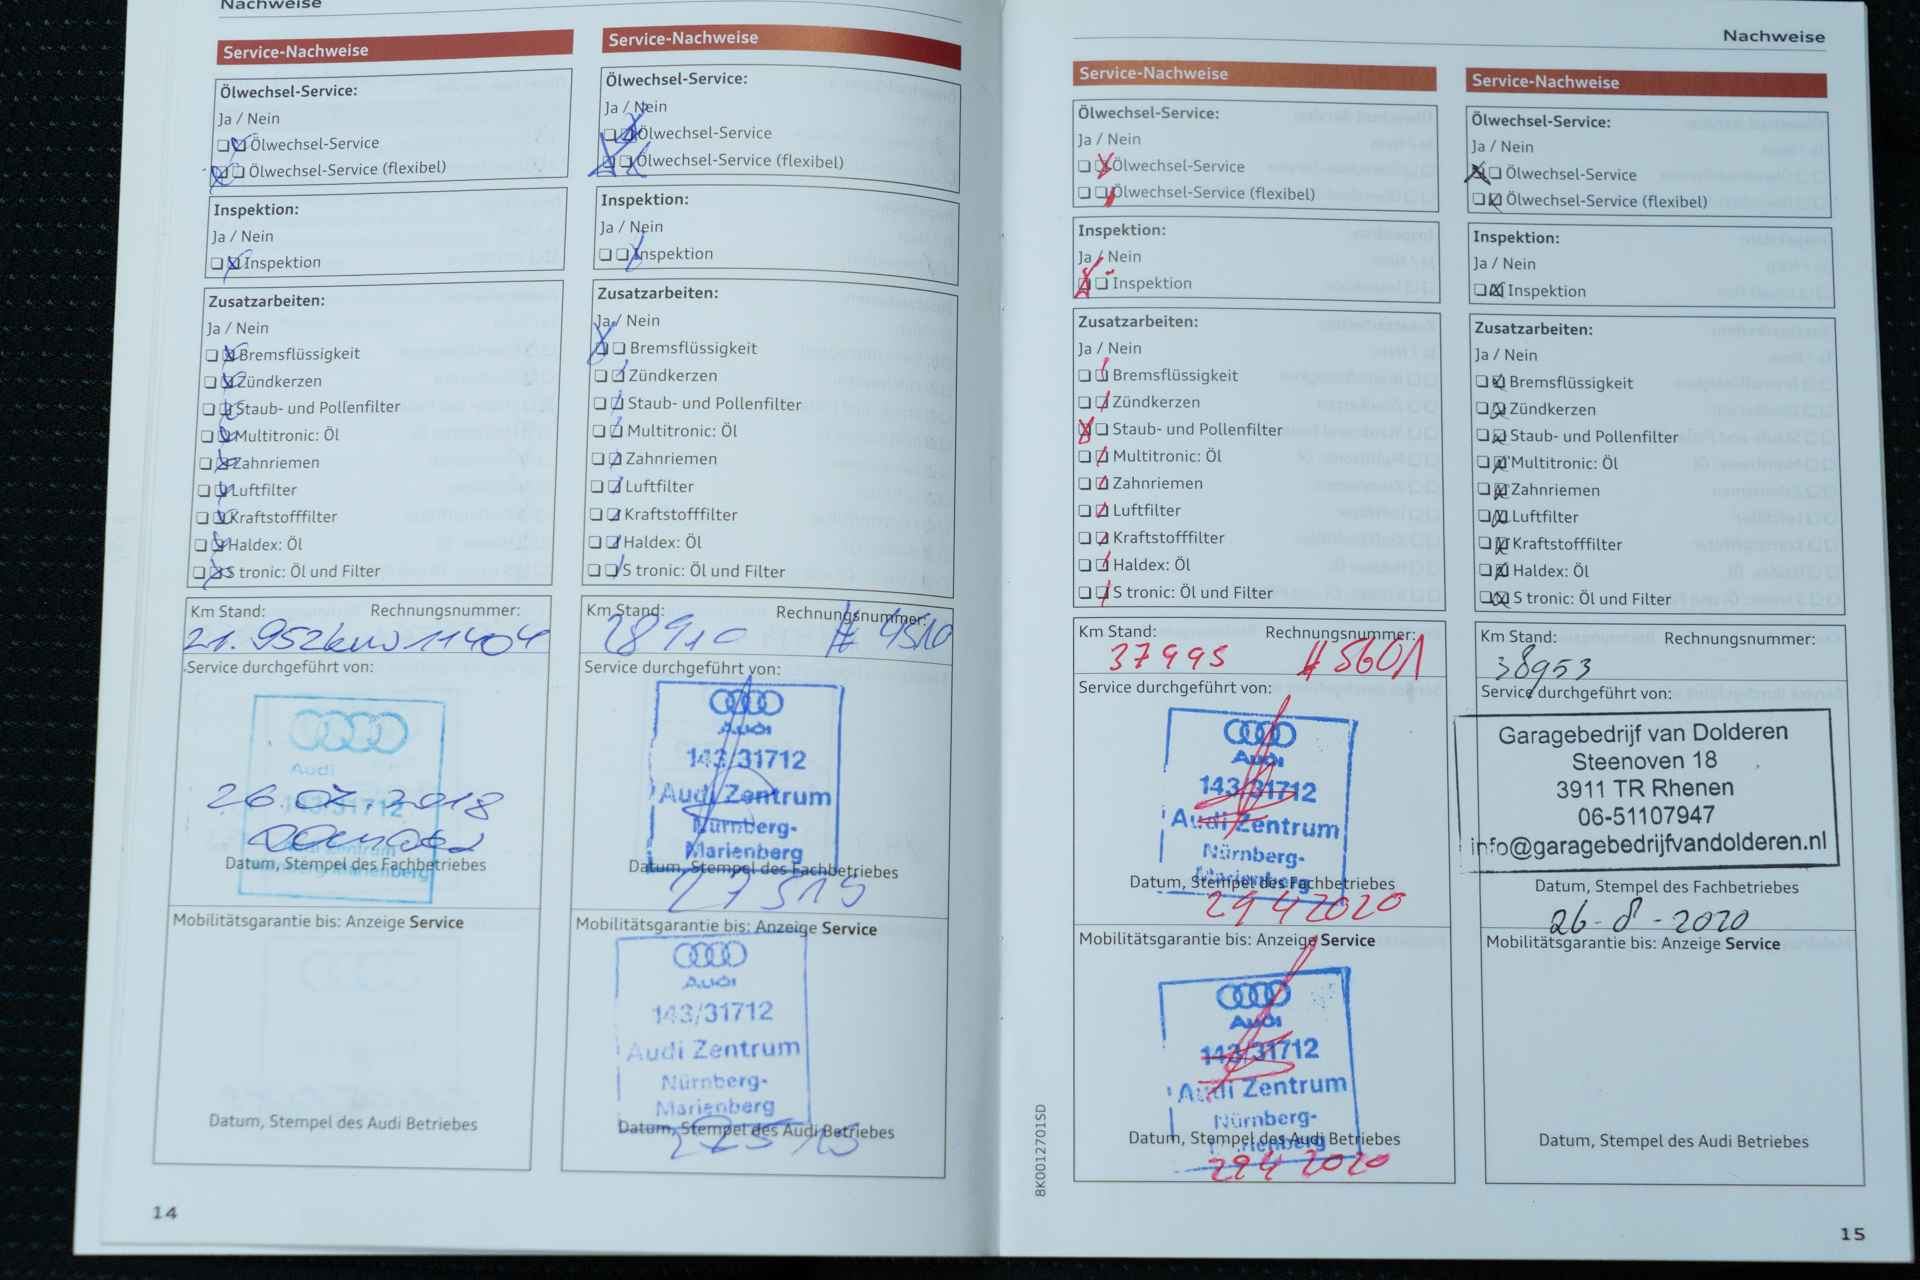 Nachweise
Service-Nachweise
Ölwechsel-Service:
Ja / Nein
Ölwechsel-Service
Ölwechsel-Service (flexibel)
Inspektion:
Ja / Nein
Inspektion
Zusatzarbeiten:
Ja / Nein
Bremsflüssigkeit
Zündkerzen
Staub- und Pollenfilter
Multitronic: Öl
Zahnriemen
Luftfilter
Kraftstofffilter
Haldex: Öl
S tronic: Öl und Filter
Km Stand: Rechnungsnummer:
21.952km 11404
Service durchgeführt von:
Audi
143/31712
26.07.2018
Datum, Stempel des Fachbetriebes
Mobilitätsgarantie bis: Anzeige Service
Datum, Stempel des Audi Betriebes
14
Service-Nachweise
Ölwechsel-Service:
Ja / Nein
Ölwechsel-Service
Ölwechsel-Service (flexibel)
Inspektion:
Ja / Nein
Inspektion
Zusatzarbeiten:
Ja / Nein
Bremsflüssigkeit
Zündkerzen
Staub- und Pollenfilter
Multitronic: Öl
Zahnriemen
Luftfilter
Kraftstofffilter
Haldex: Öl
S tronic: Öl und Filter
Km Stand: Rechnungsnummer:
28910 # 4510
Service durchgeführt von:
Audi
143/31712
Audi Zentrum
Nürnberg-
Marienberg
Datum, Stempel des Fachbetriebes
27 5 19
Mobilitätsgarantie bis: Anzeige Service
Audi
143/31712
Audi Zentrum
Nürnberg-
Marienberg
Datum, Stempel des Audi Betriebes
Nachweise
Service-Nachweise
Ölwechsel-Service:
Ja / Nein
Ölwechsel-Service
Ölwechsel-Service (flexibel)
Inspektion:
Ja / Nein
Inspektion
Zusatzarbeiten:
Ja / Nein
Bremsflüssigkeit
Zündkerzen
Staub- und Pollenfilter
Multitronic: Öl
Zahnriemen
Luftfilter
Kraftstofffilter
Haldex: Öl
S tronic: Öl und Filter
Km Stand: Rechnungsnummer:
37995 # 5601
Service durchgeführt von:
Audi
143/31712
Audi Zentrum
Nürnberg-
Marienberg
Datum, Stempel des Fachbetriebes
29 4 2020
Mobilitätsgarantie bis: Anzeige Service
Audi
143/31712
Audi Zentrum
Nürnberg-
Marienberg
Datum, Stempel des Audi Betriebes
29 4 2020
8K0012701SD
Service-Nachweise
Ölwechsel-Service:
Ja / Nein
Ölwechsel-Service
Ölwechsel-Service (flexibel)
Inspektion:
Ja / Nein
Inspektion
Zusatzarbeiten:
Ja / Nein
Bremsflüssigkeit
Zündkerzen
Staub- und Pollenfilter
Multitronic: Öl
Zahnriemen
Luftfilter
Kraftstofffilter
Haldex: Öl
S tronic: Öl und Filter
Km Stand: Rechnungsnummer:
38953
Service durchgeführt von:
Garagebedrijf van Dolderen
Steenoven 18
3911 TR Rhenen
06-51107947
info@garagebedrijfvandolderen.nl
Datum, Stempel des Fachbetriebes
26-8-2020
Mobilitätsgarantie bis: Anzeige Service
Datum, Stempel des Audi Betriebes
15